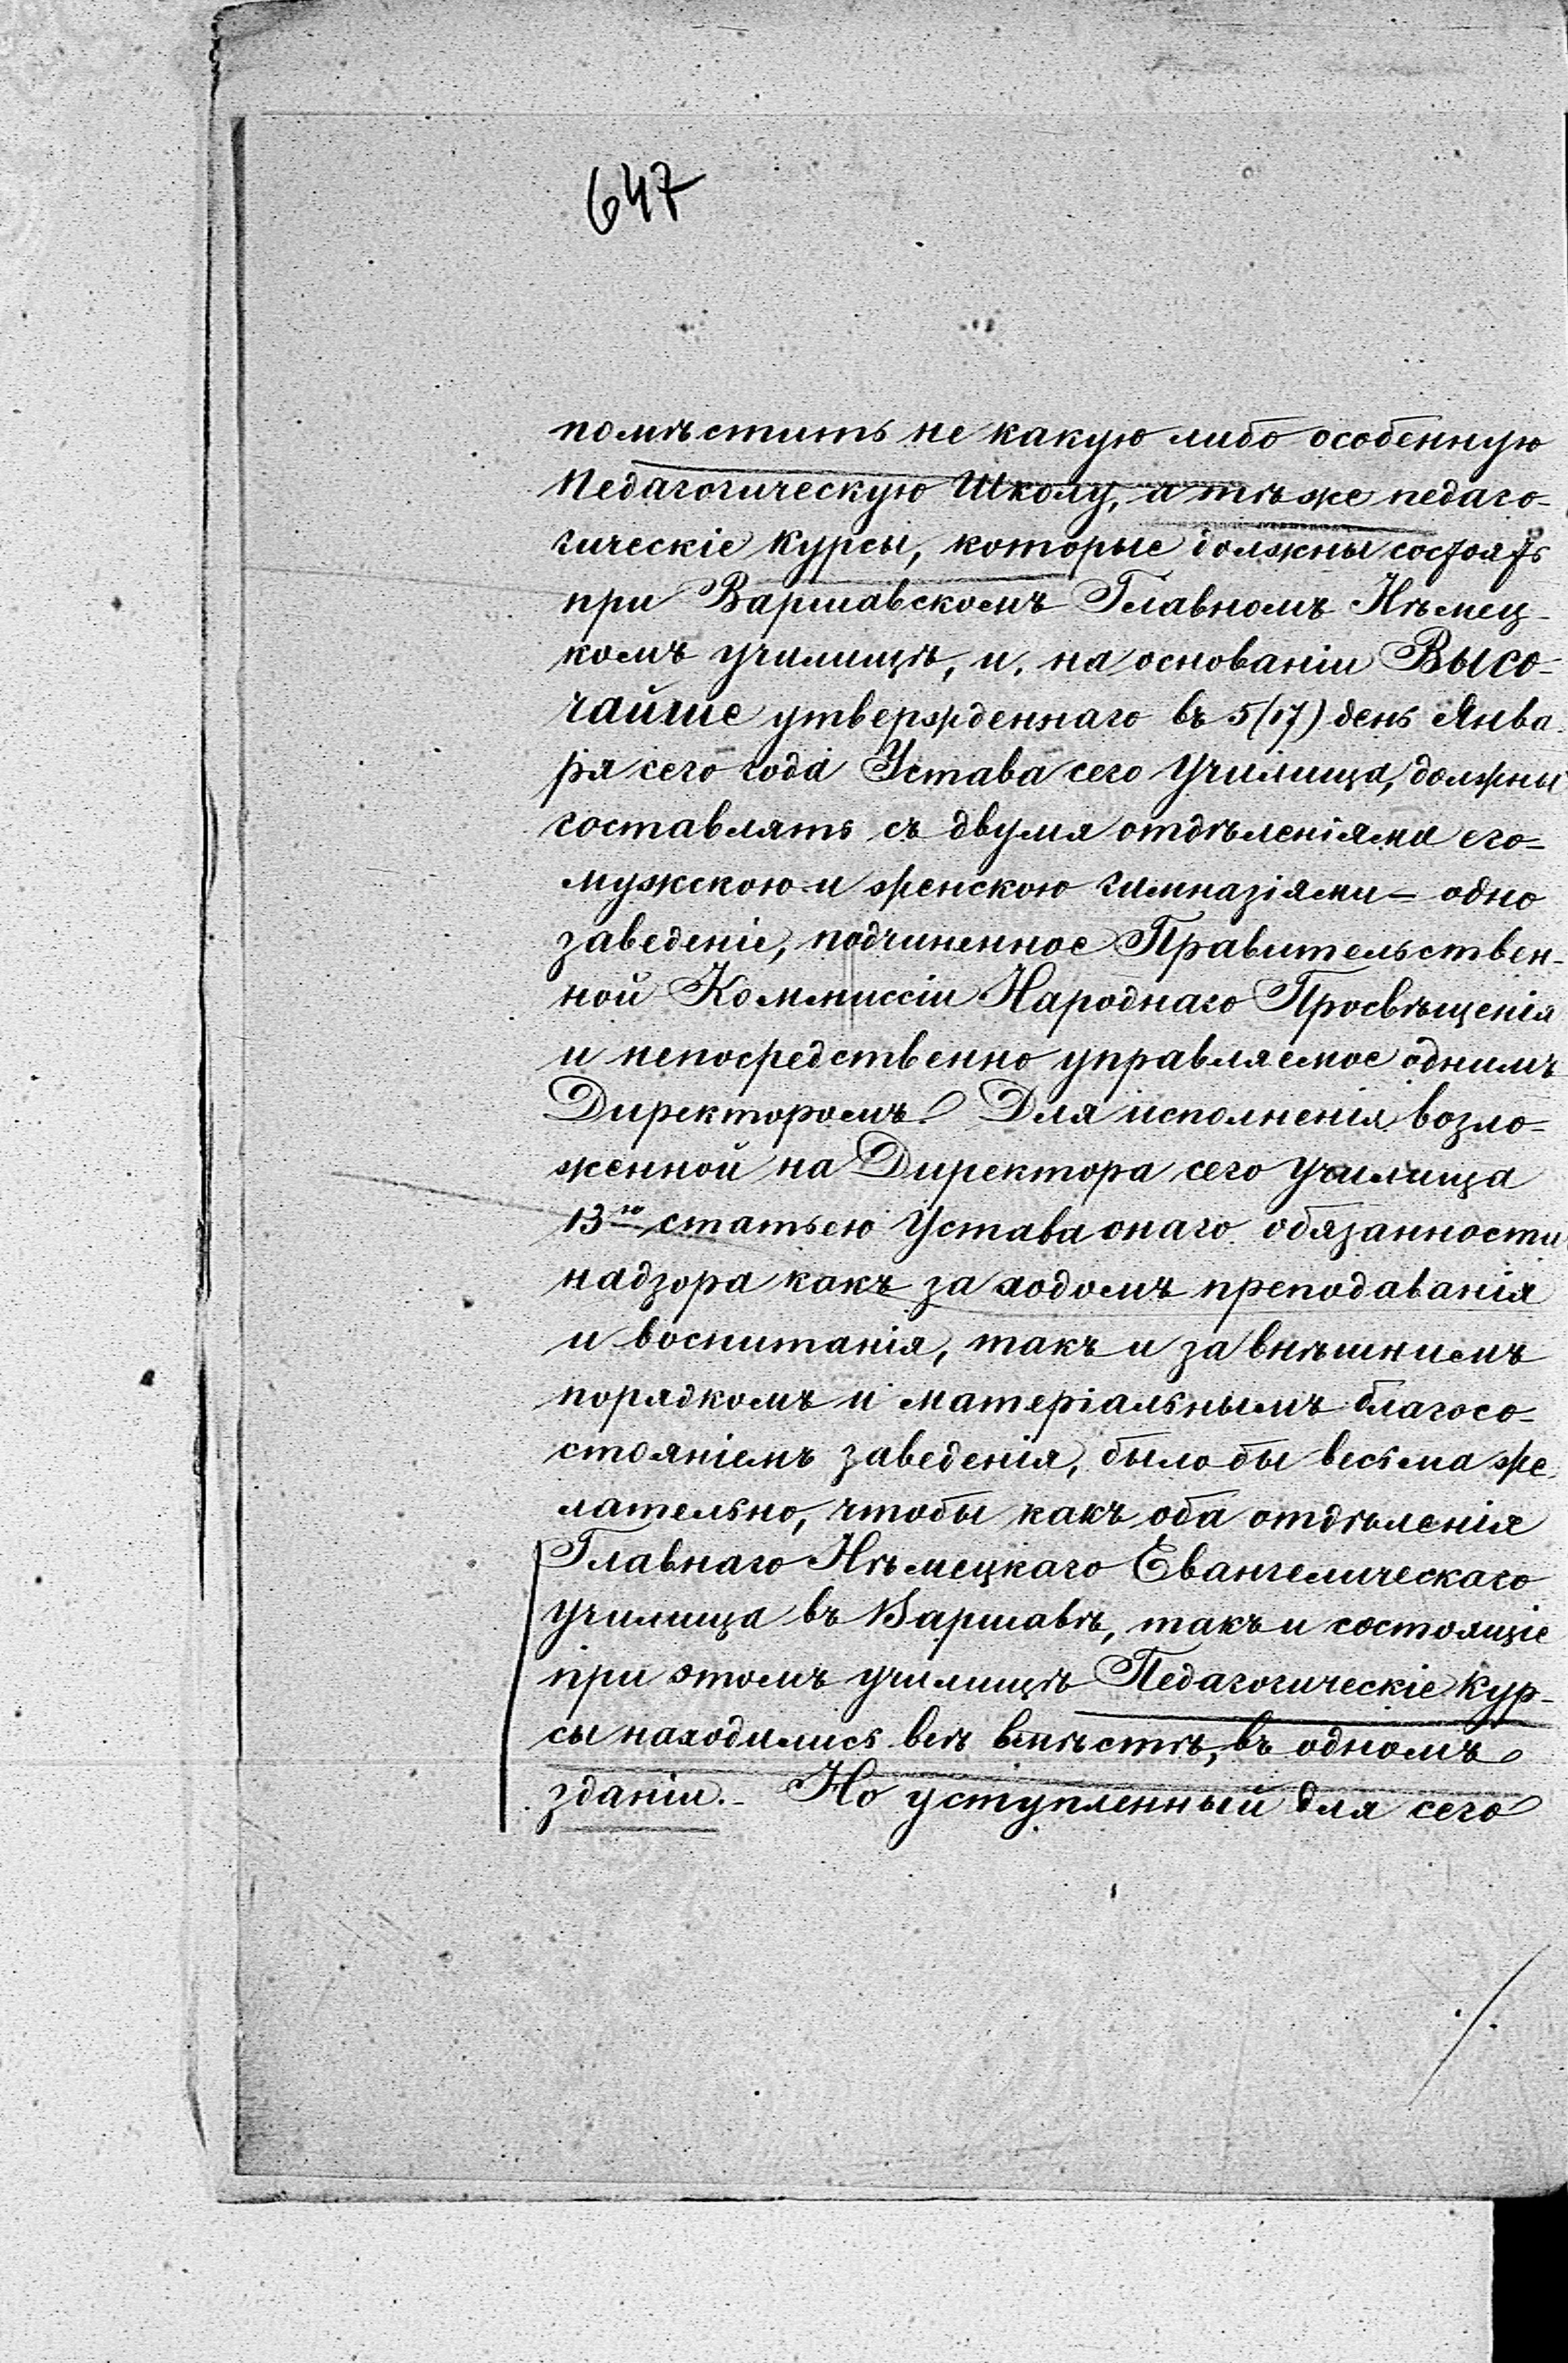 647
помѣстить не какую либо особенную
Педагогическую Школу, а тѣ же педаго-
гическіе курсы, которые должны состоять
при Варшавскомъ Главномъ Нѣмец-
комъ училищѣ, и, на основаніи Высо-
чайше утвержденнаго въ 5/17) день Янва-
ря сего года Устава сего Училища, должны
составлять съ двумя отдѣленіями его=
мужскою и женскою гимназіями= одно
заведеніе, подчиненное Правительствен-
ной Коммиссіи Народнаго Просвѣщенія
и непосредственно управляемое однимъ
Директоромъ. Для исполненія возло=
женной на Директора сего Училища
13ю статьею Устава онаго обязанности
надзора какъ за ходомъ преподаванія
и воспитанія, такъ и за внѣшнимъ
порядкомъ и матеріальнымъ благосо-
стояніемъ заведенія, было бы весьма же-
лательно, чтобы какъ оба отдѣленія
Главнаго Нѣмецкаго Евангелическаго
Училища въ Варшавѣ, такъ и состоящіе
при этомъ училищѣ Педагогическіе кур-
сы находились всѣ вмѣстѣ, въ одномъ
зданіи.- Но уступленный для сего
./.